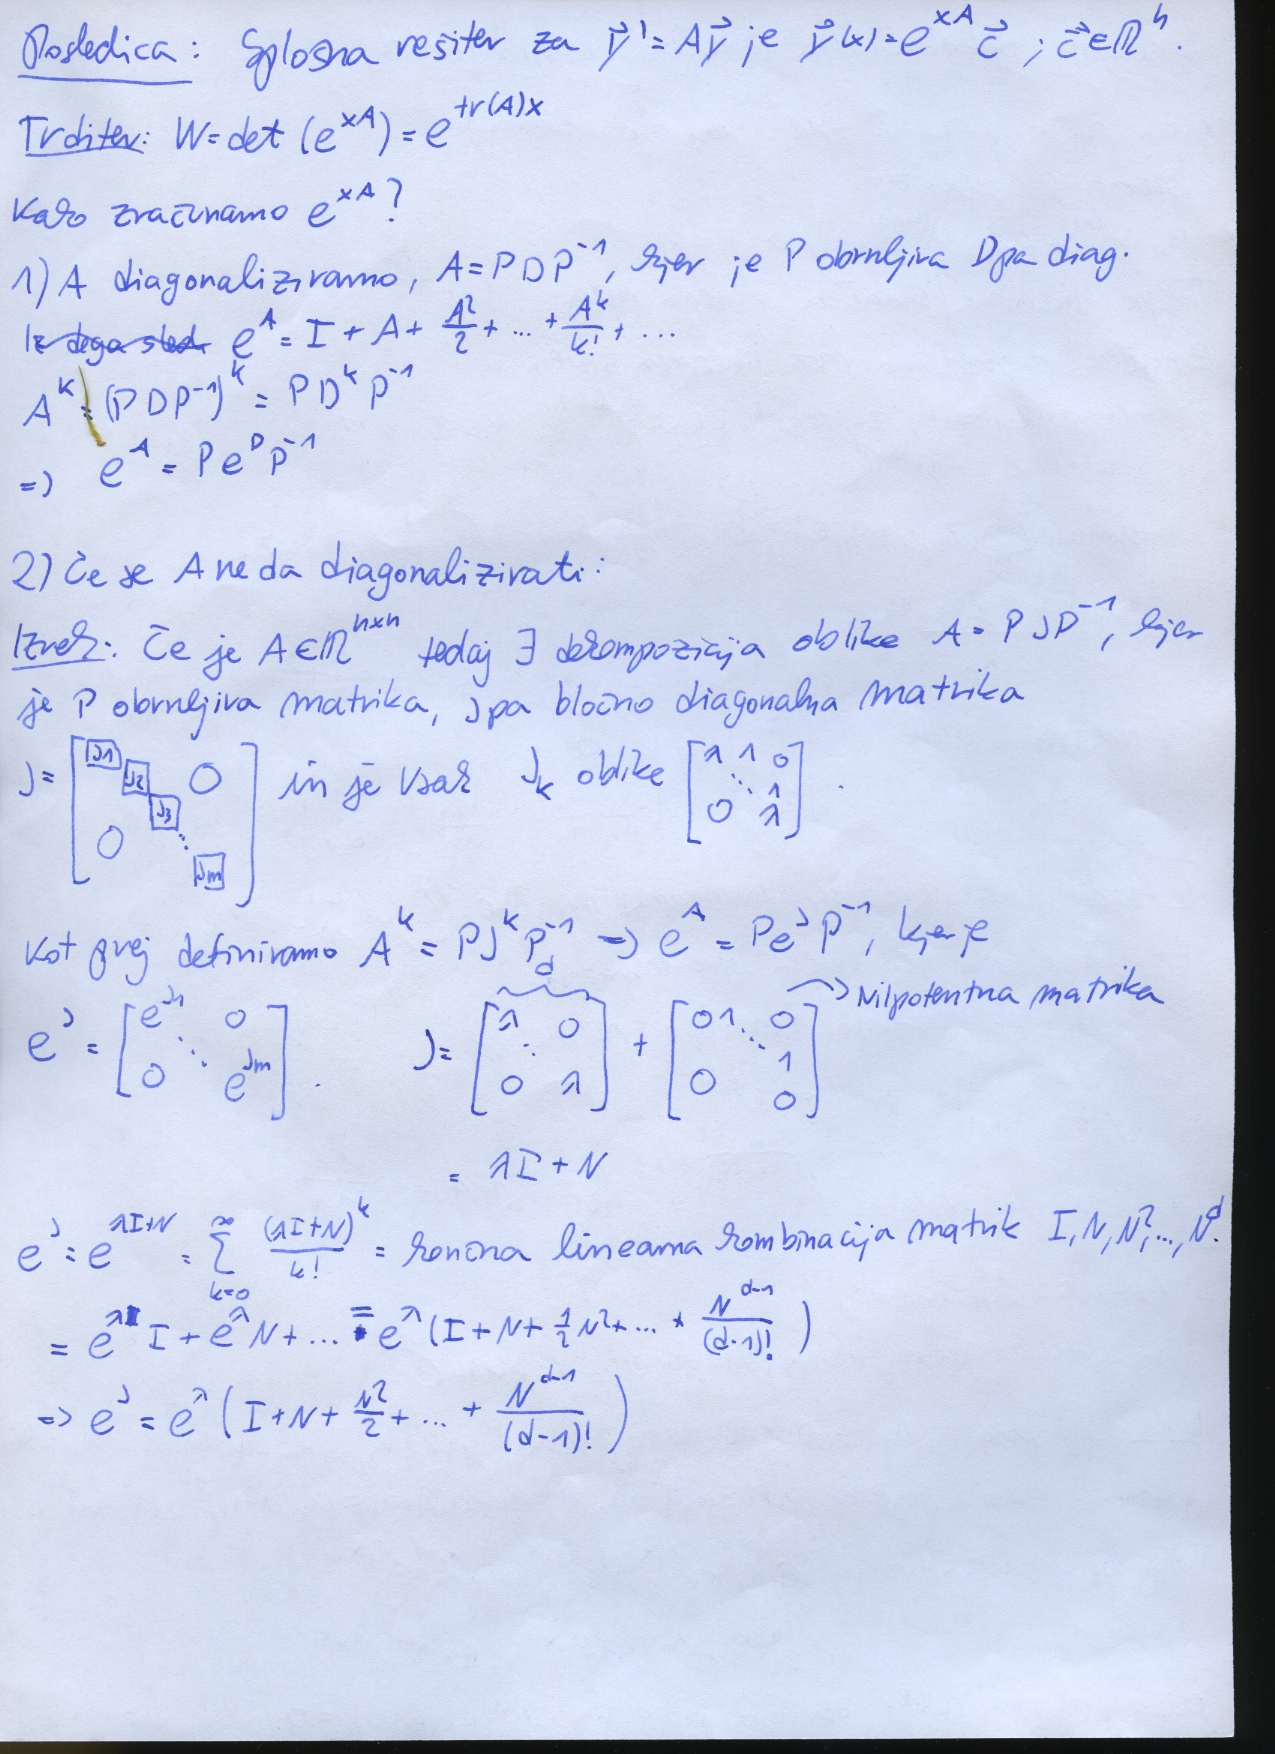 Posledica: Splošna rešitev za y⃗' = Ay⃗ je y⃗(x) = e^{xA} c⃗ ; c⃗ ∈ ℝ^n.
Trditev: W = det (e^{xA}) = e^{tr(A)x}
Kako izračunamo e^{xA}?
1) A diagonaliziramo, A = PDP^{-1}, kjer je P obrnljiva D pa diag.
Iz tega sledi e^A = I + A + A²/2 + ... + A^k/k! + ...
A^k = (PDP^{-1})^k = PD^kP^{-1}
=> e^A = Pe^DP^{-1}
2) Če se A ne da diagonalizirati:
Izrek: Če je A ∈ ℝ^{n×n} tedaj ∃ dekompozicija oblike A = PJP^{-1}, kjer
je P obrnljiva matrika, J pa bločno diagonalna matrika
J = [J1 J2 J3 ⋱ Jm 0 0] in je vsak J_k oblike [λ 1 0 ⋱ 1 0 λ].
Kot prej definiramo A^k = PJ^kP^{-1} => e^A = Pe^JP^{-1}, kjer je
d → Nilpotentna matrika
e^J = [e^{J1} 0 ⋱ 0 e^{Jm}]. J = [λ 0 ⋱ 0 λ] + [0 1 0 ⋱ 1 0 0]
= λI + N
e^J = e^{λI+N} = ∑_{k=0}^{∞} (λI+N)^k/k! = končna linearna kombinacija matrik I, N, N², ..., N^d.
= e^λ I + e^λ N + ... = e^λ (I + N + 1/2 N² + ... + N^{d-1}/(d-1)!)
=> e^J = e^λ (I + N + N²/2 + ... + N^{d-1}/(d-1)!)